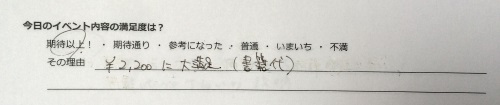 今日のイベント内容の満足度は？
期待以上！ ・ 期待通り ・ 参考になった ・ 普通 ・ いまいち ・ 不満
その理由 ¥2,200 に大満足（書籍代）